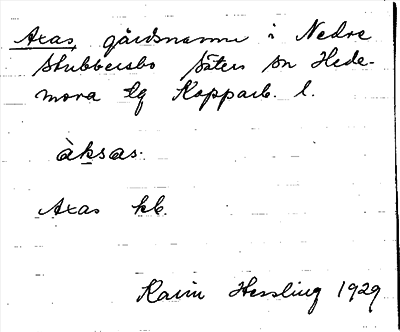 Axas, gårdsnamn i Nedre
Stubbersbo Säters sn Hede-
mora tg Kopparb. l.
àksas.
Axas kb.
Karin Hessling 1929